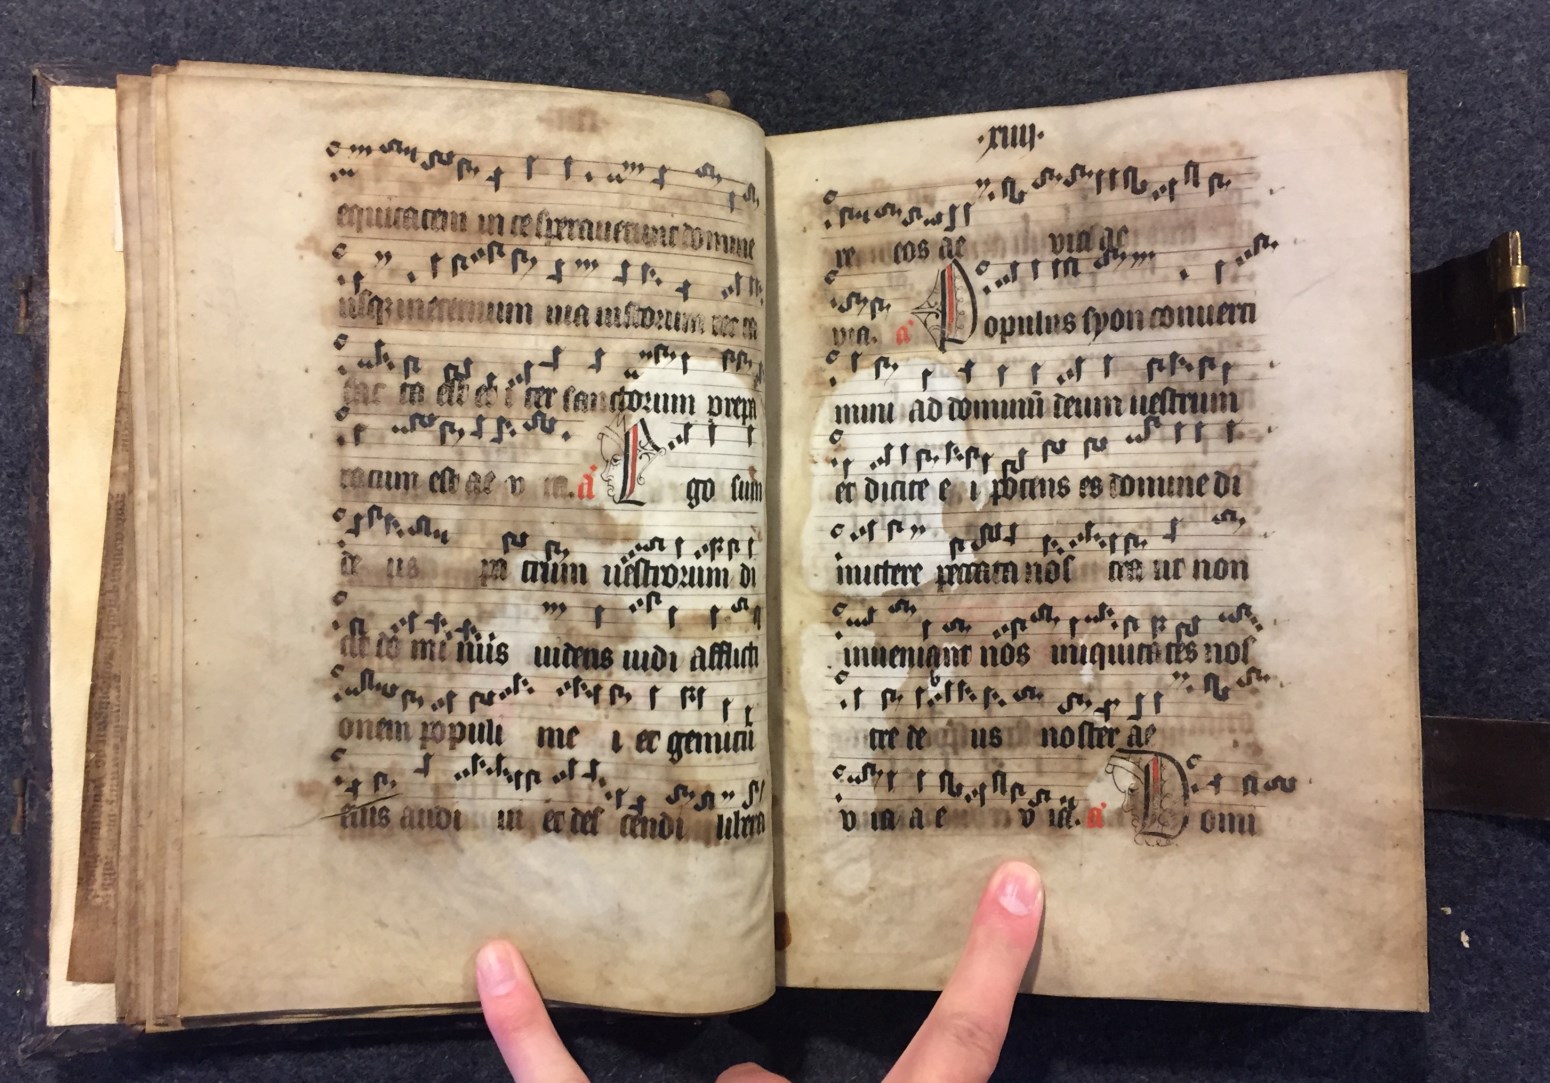 equitatem in te speraverunt domine
usq; in eternum via iustorum rec ta
fac ta est et i ter sanctorum prepa
ratum est ae v ia. a Ego sum
de us pa trum vestrorum di
cit do mi nus videns vidi afflicti
onem populi me i et gemitū
eius audi vi et des cendi libera
·xiiij·
re eos ae via ae
via. a Populus syon converti
mini ad dominū deum vestrum
et dicite e i potens es domine di
mittere peccata nos tra ut non
inveniant nos iniquitates nos
tre de us noster ae
v ia a e v ia. a Domi